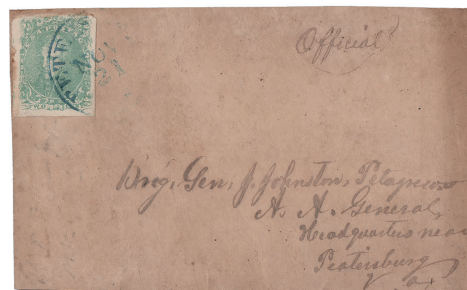 PETE AUG
Official
Brig. Gen. J. Johnston, Pettigrew
A. A. General,
Headquarters near
Petersburg